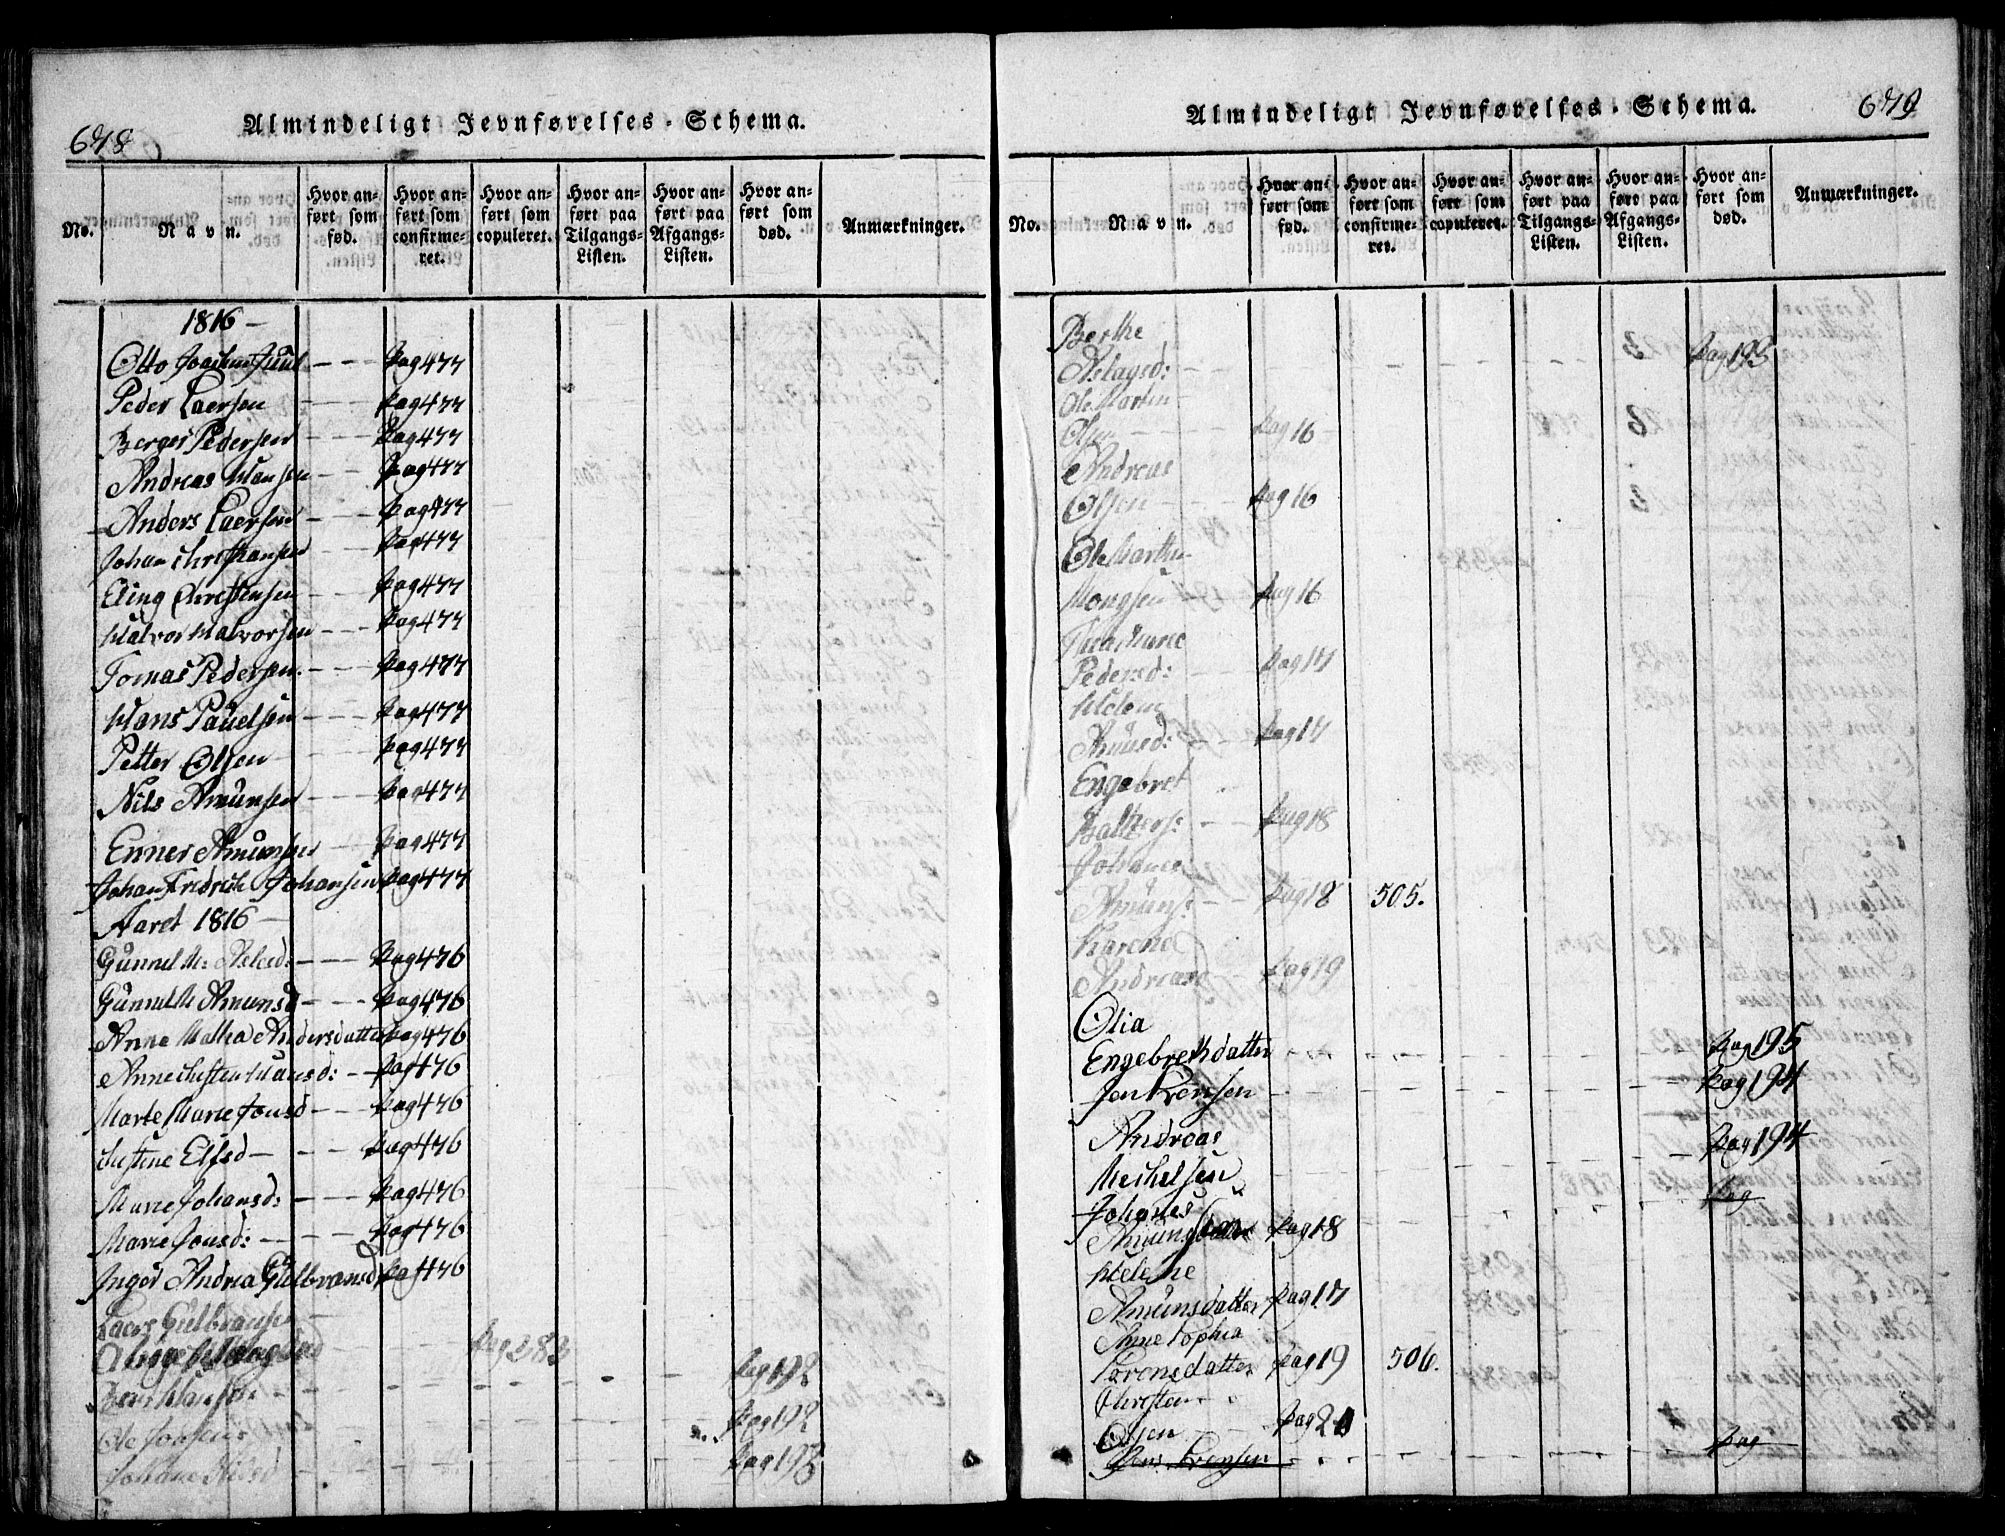 648
Almindeligt Jevnførelses-Schema.
No.
Navn.
Hvor anført som fød.
Hvor anført som confirmeret.
Hvor anført som copuleret.
Hvor anført paa Tilgangs-Listen.
Hvor anført paa Afgangs-Listen.
Hvor anført som død.
Anmærkninger.
1816 —
Otto Joachim Juul — — — Pag 477
Peder Laersen — — — Pag 477
Berger Pedersen — — — Pag 477
Andreas Hansen — — Pag 477
Anders Laersen — — — Pag 477
Johan Christiansen — — Pag 477
Eling Christensen — — — Pag 477
Halvor Halvorsen — — Pag 477
Tomas Pedersen. — — Pag 477
Hans Paŭelsen — — — Pag 477
Petter Olsen — — — Pag 477
Nils Amŭnsen — — — Pag 477
Enner Amŭnsen — — Pag 477
Johan Fredrich Johansen Pag 477
Aaret 1816 —
Gŭnnild M: — — — Pag 476
Gŭnnild M Amunsd — — — Pag 476
Anne Mathea Andersdatter Pag 476
Anne Kisten Hansd: — Pag 476
Marte Marie Jonsd — — Pag 476
Kistine Elfsd — — — Pag 476
Marie Johansd: — — — Pag 476
Marie Jonsd: — — — — Pag 476
Inger Andrea Gŭlbransd Pag 476
Laers Gŭlbransen
Pag 283
Hansen — — — Pag 192
Ole Jonsen — — — Pag 192
Johane Nilsd — — — Pag 193
679
Almindeligt Jevnførelses-Schema.
No.
Navn.
Hvor anført som fød.
Hvor anført som confirmeret.
Hvor anført som copuleret.
Hvor anført paa Tilgangs-Listen.
Hvor anført paa Afgangs-Listen.
Hvor anført som død.
Anmærkninger.
Berthe
Aslagsd: — — — Pag 193
Ole Martin
Olsen — — — Pag 16
Andreas
Olsen — — — Pag 16
Ole Martin
Mongsen — Pag 16
Marie
Pedersd: — Pag 17
Helene
Amŭnsd: — Pag 17
Engebret
Balthers: — — Pag 18
Johanes
Amŭns: — — Pag 18 505.
Karene
Andreasd — — Pag 19
Olia
Engebrethdatter — — — Pag 195
Jon Evensen — — — Pag 194
Andreas
Mechelsen — — — Pag 194
Johanes — — — Pag
Amŭnsen Pag 18
Helene
Amŭnsdatter Pag 17
Anne Sophia
Sorensdatter Pag 19 506.
Christian
Olsen — Pag 20
Jens Evensen — — — Pag